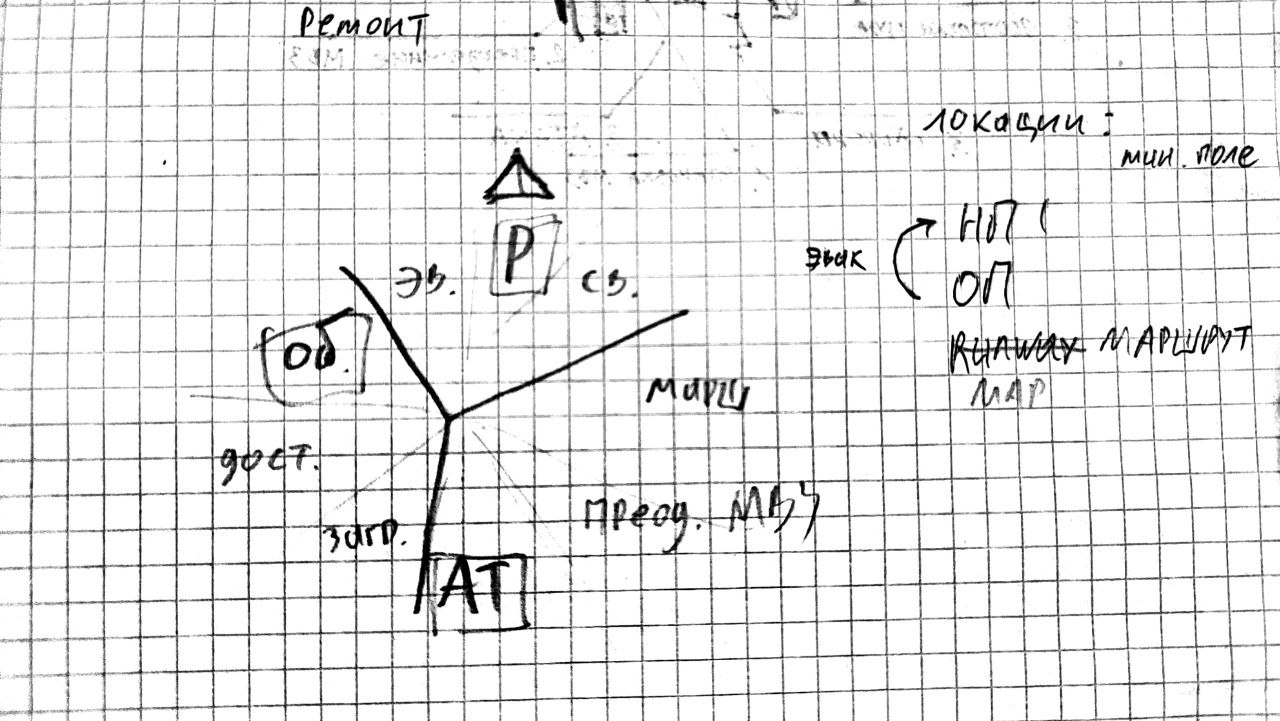 Ремонт
локации:
мин. поле
Р
НП
эв.
св.
эвак
ОП
об.
МАРШРУТ
МАР
марш
дост.
Преод. МВЗ
загр.
АТ